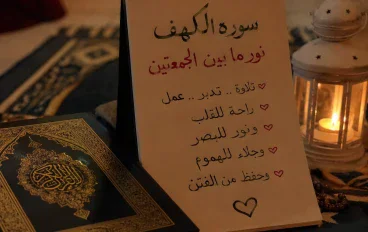 سورة الكهف
نور ما بين الجمعتين
تلاوة .. تدبر .. عمل
راحة للقلب
ونور للبصر
وجلاء للهموم
وحفظ من الفتن
القرآن الكريم